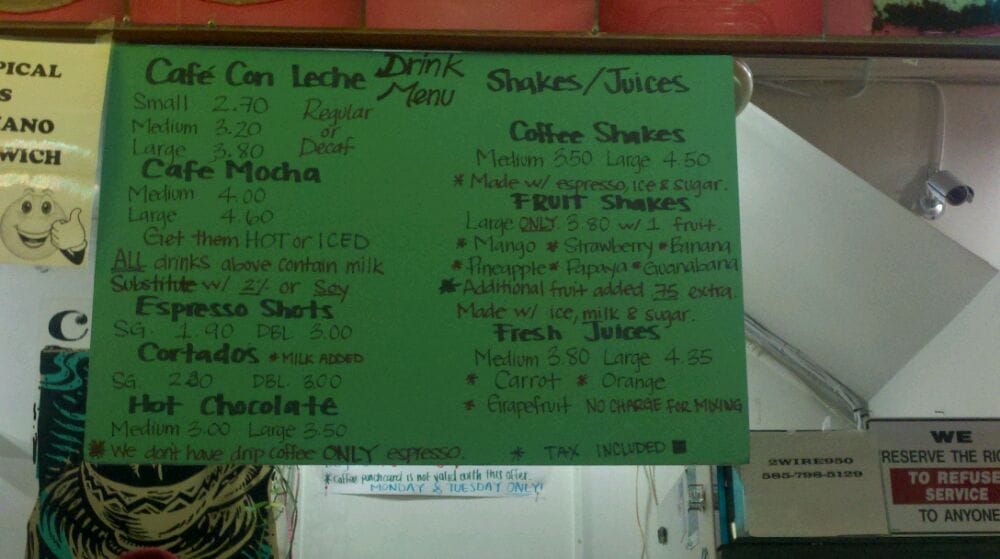 PICAL
S
ANO
WICH
Drink
Menu
Café Con Leche
Small 2.70
Medium 3.20
Large 3.80
Regular
or
Decaf
Cafe Mocha
Medium 4.00
Large 4.60
Get them HOT or ICED
ALL drinks above contain milk
Substitute w/ 2% or Soy
Espresso Shots
SG. 1.90 DBL 3.00
Cortados * MILK ADDED
SG. DBL. 3.00
Hot Chocolate
Medium 3.00 Large 3.50
* We don't have drip coffee ONLY espresso.
Shakes/Juices
Coffee Shakes
Medium 3.50 Large 4.50
* Made w/ espresso, ice & sugar.
FRUIT Shakes
Large ONLY 3.80 w/ 1 fruit.
* Mango * Strawberry * Banana
* Pineapple * Papaya * Guanabana
* Additional fruit added 75 extra.
Made w/ ice, milk & sugar.
Fresh Juices
Medium 3.80 Large 4.35
* Carrot * Orange
* Grapefruit NO CHARGE FOR MIXING
* TAX INCLUDED
C
*Coffee punchcard is not valid with this offer.
MONDAY & TUESDAY ONLY!
2WIRE950
585-798-5129
WE
RESERVE THE RIG
TO REFUSE
SERVICE
TO ANYONE